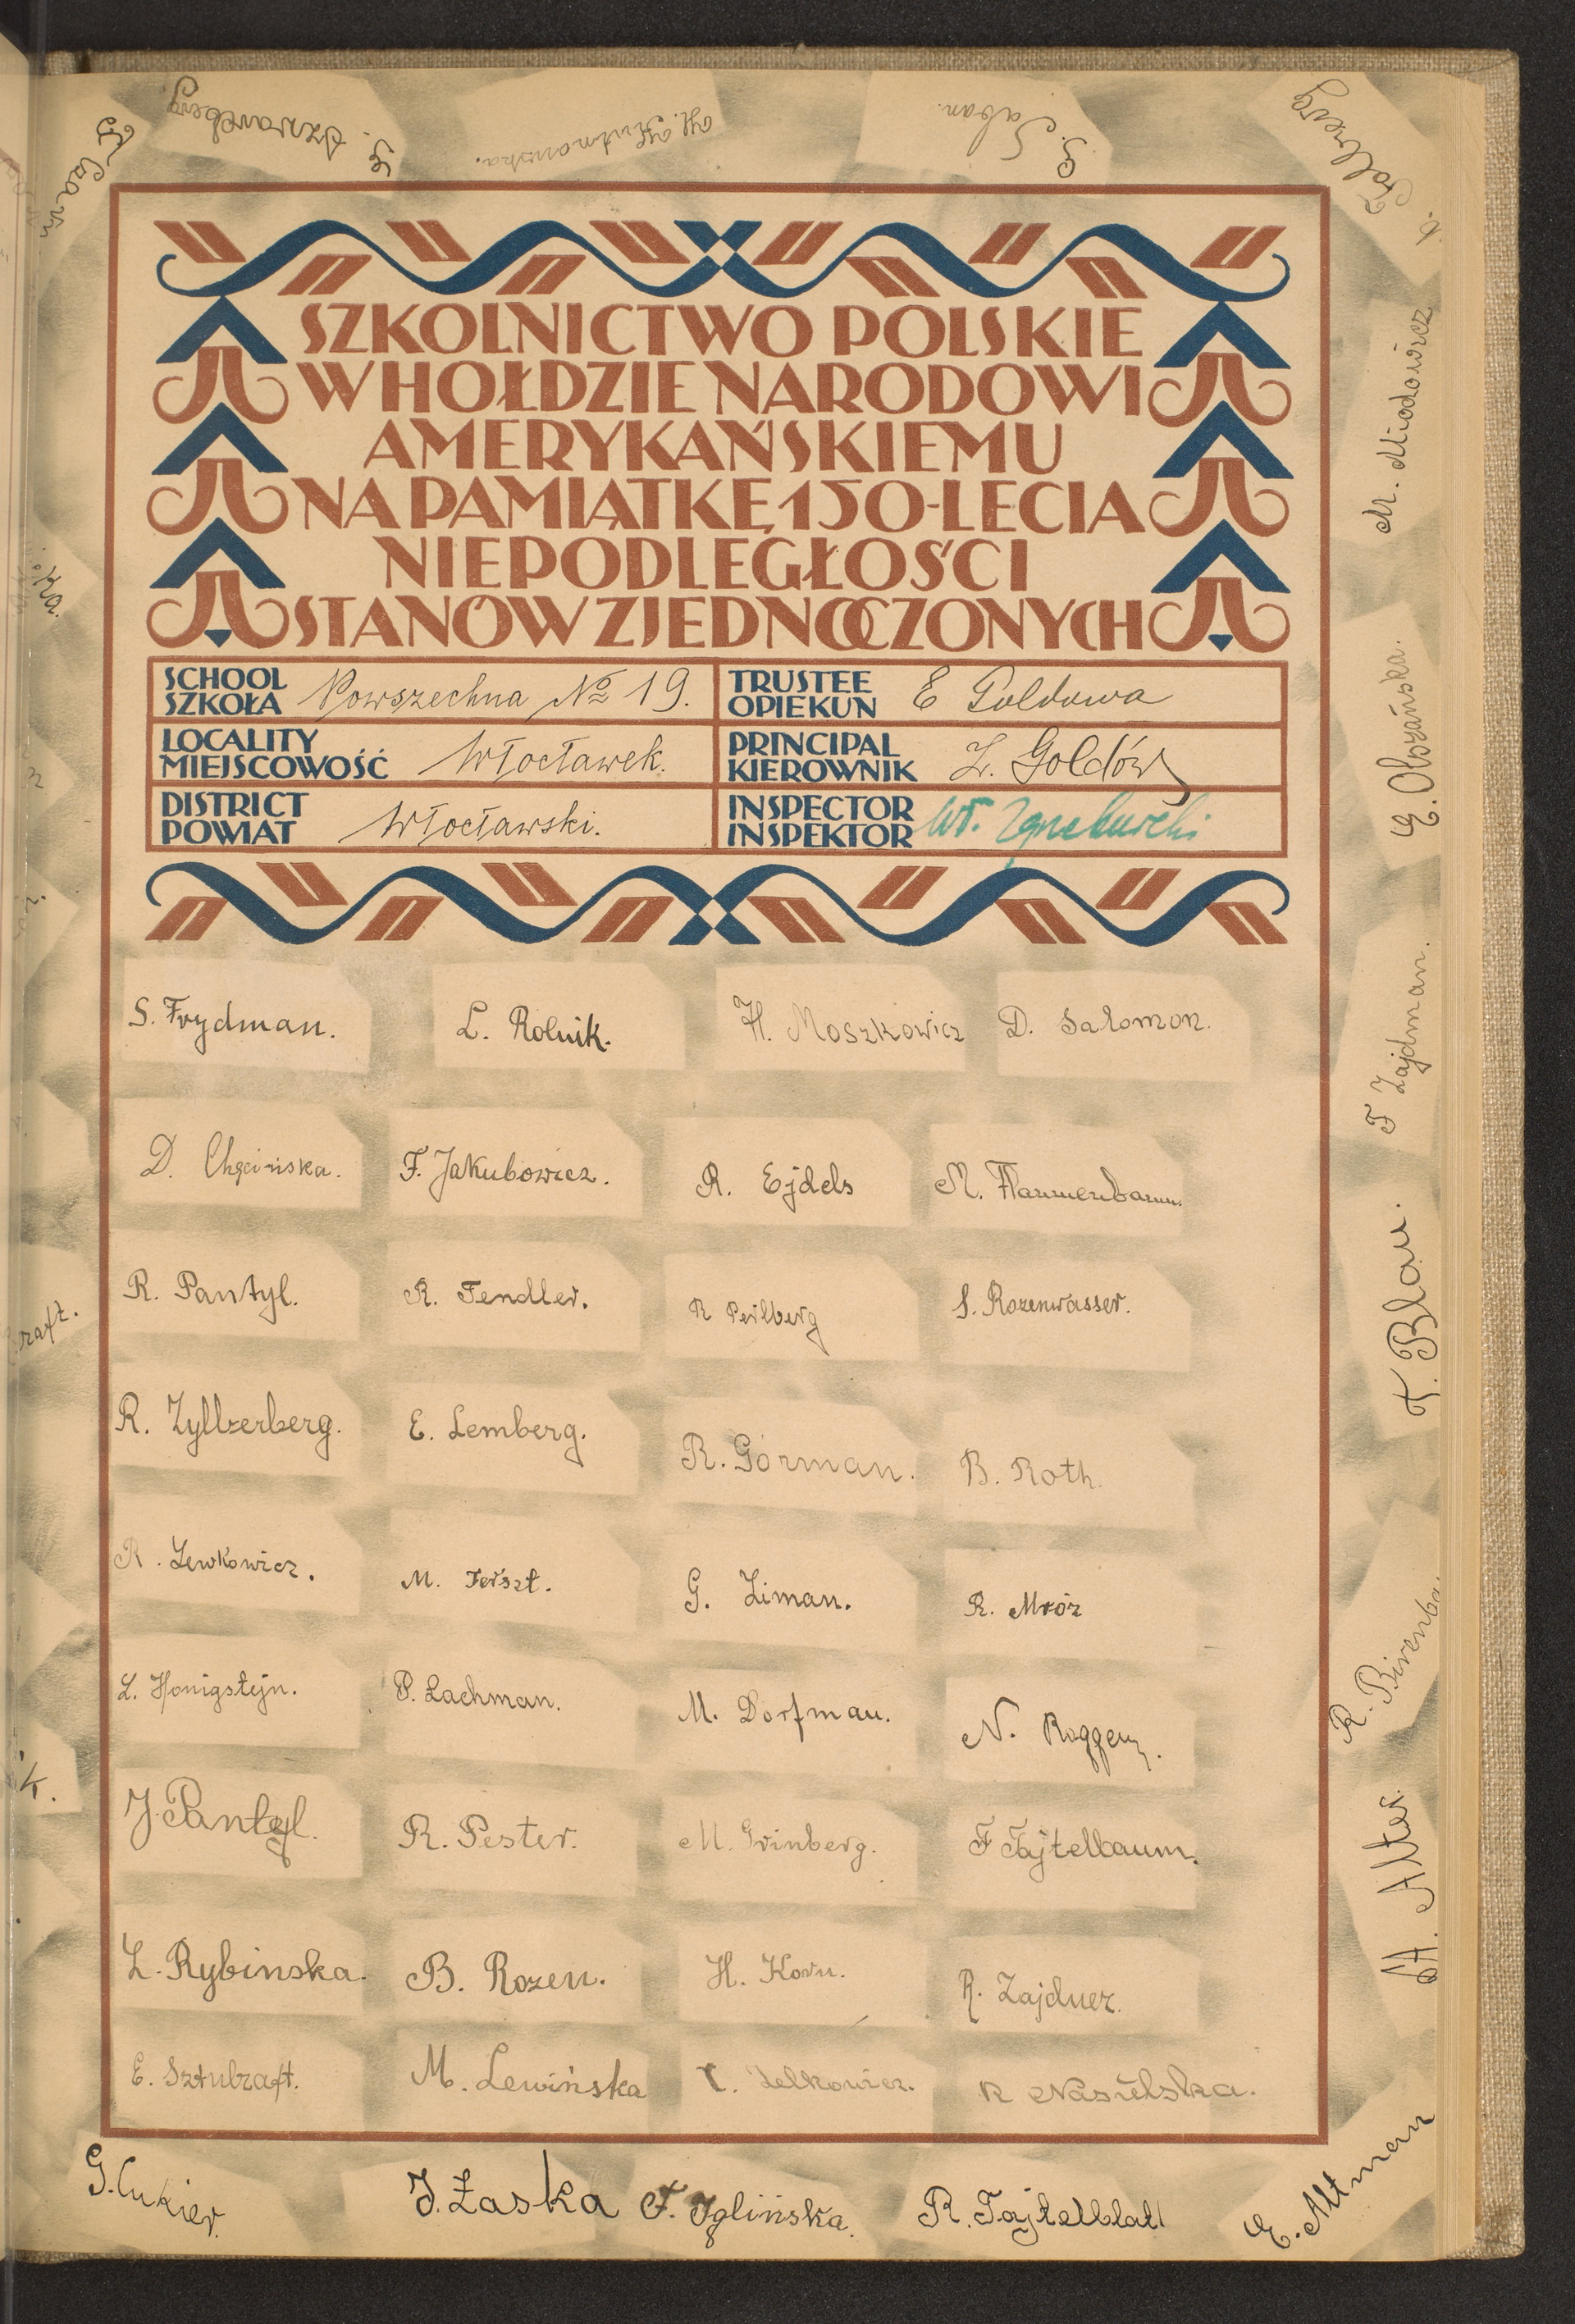 F Czarn
S. Szwarcberg.
H. H. Kutnowska.
G. Saban.
SZKOLNICTWO POLSKIE
W HOŁDZIE NARODOWI
AMERYKAŃSKIEMU
NA PAMIĄTKĘ 150-LECIA
NIEPODLEGŁOŚCI
STANÓW ZJEDNOCZONYCH
SCHOOL
SZKOŁA Powszechna № 19.
TRUSTEE
OPIEKUN E Goldowa
LOCALITY
MIEJSCOWOŚĆ Włocławek.
PRINCIPAL
KIEROWNIK Z. Goldów
DISTRICT
POWIAT Włocławski.
INSPECTOR
INSPEKTOR Wł.
S. Frydman. L. Rolnik. H. Moszkowicz D. Salomon.
D. Chęcińska. F. Jakubowicz. R. Ejdels M. Flamenbaum.
R. Pantyl. R. Fendler. R Perlberg S. Rozenwasser.
R. Zylberberg. E. Lemberg. R. Gorman. B. Roth.
R. Lewkowicz. M. Ferszt. G. Ziman. R. Mróz
L. Honigstejn. P. Lachman. M. Dorfman. N. Roggen.
J. Pantyl. R. Pester. M. Grinberg. F Tajtelbaum.
L. Rybinska. B. Rozen. H. Korn. R. Zajdner.
E. Sztubraft. M. Lewińska Lelkowicz. R Nasielska.
G. Cukier. J. Łaska F. Iglińska. R. Tajtelblatt E. Altman
M. Miodowicz
E. Obrzańska.
F Zajdman.
F. Blau.
R. Birenba
A. Alter.
raft.
k.